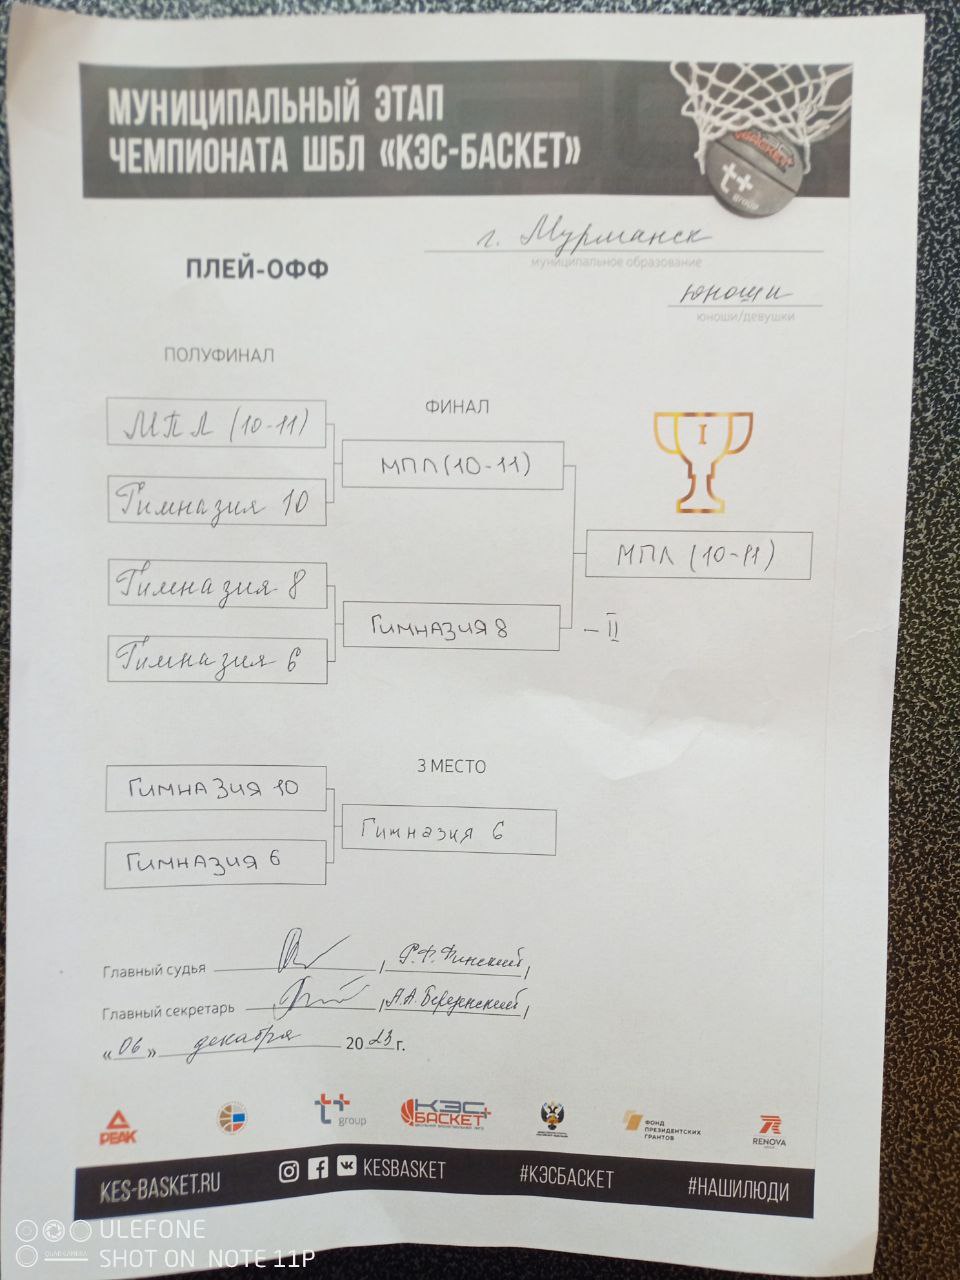 МУНИЦИПАЛЬНЫЙ ЭТАП
ЧЕМПИОНАТА ШБЛ «КЭС-БАСКЕТ»
БАСКЕТ
t+
group
г. Мурманск
муниципальное образование
ПЛЕЙ-ОФФ
юноши
юноши/девушки
ПОЛУФИНАЛ
ФИНАЛ
I
МПЛ (10-11)
МПЛ (10-11)
Гимназия 10
МПЛ (10-11)
Гимназия 8
Гимназия 8
– II
Гимназия 6
3 МЕСТО
Гимназия 10
Гимназия 6
Гимназия 6
Главный судья / Р.Ф. Финский /
Главный секретарь / А.А. /
«06» декабря 2023 г.
PEAK
t+ group
КЭС БАСКЕТ
ФОНД ПРЕЗИДЕНТСКИХ ГРАНТОВ
RENOVA
KES-BASKET.RU
KESBASKET
#КЭСБАСКЕТ
#НАШИЛЮДИ
ULEFONE
QUAD CAMERA
SHOT ON NOTE 11P